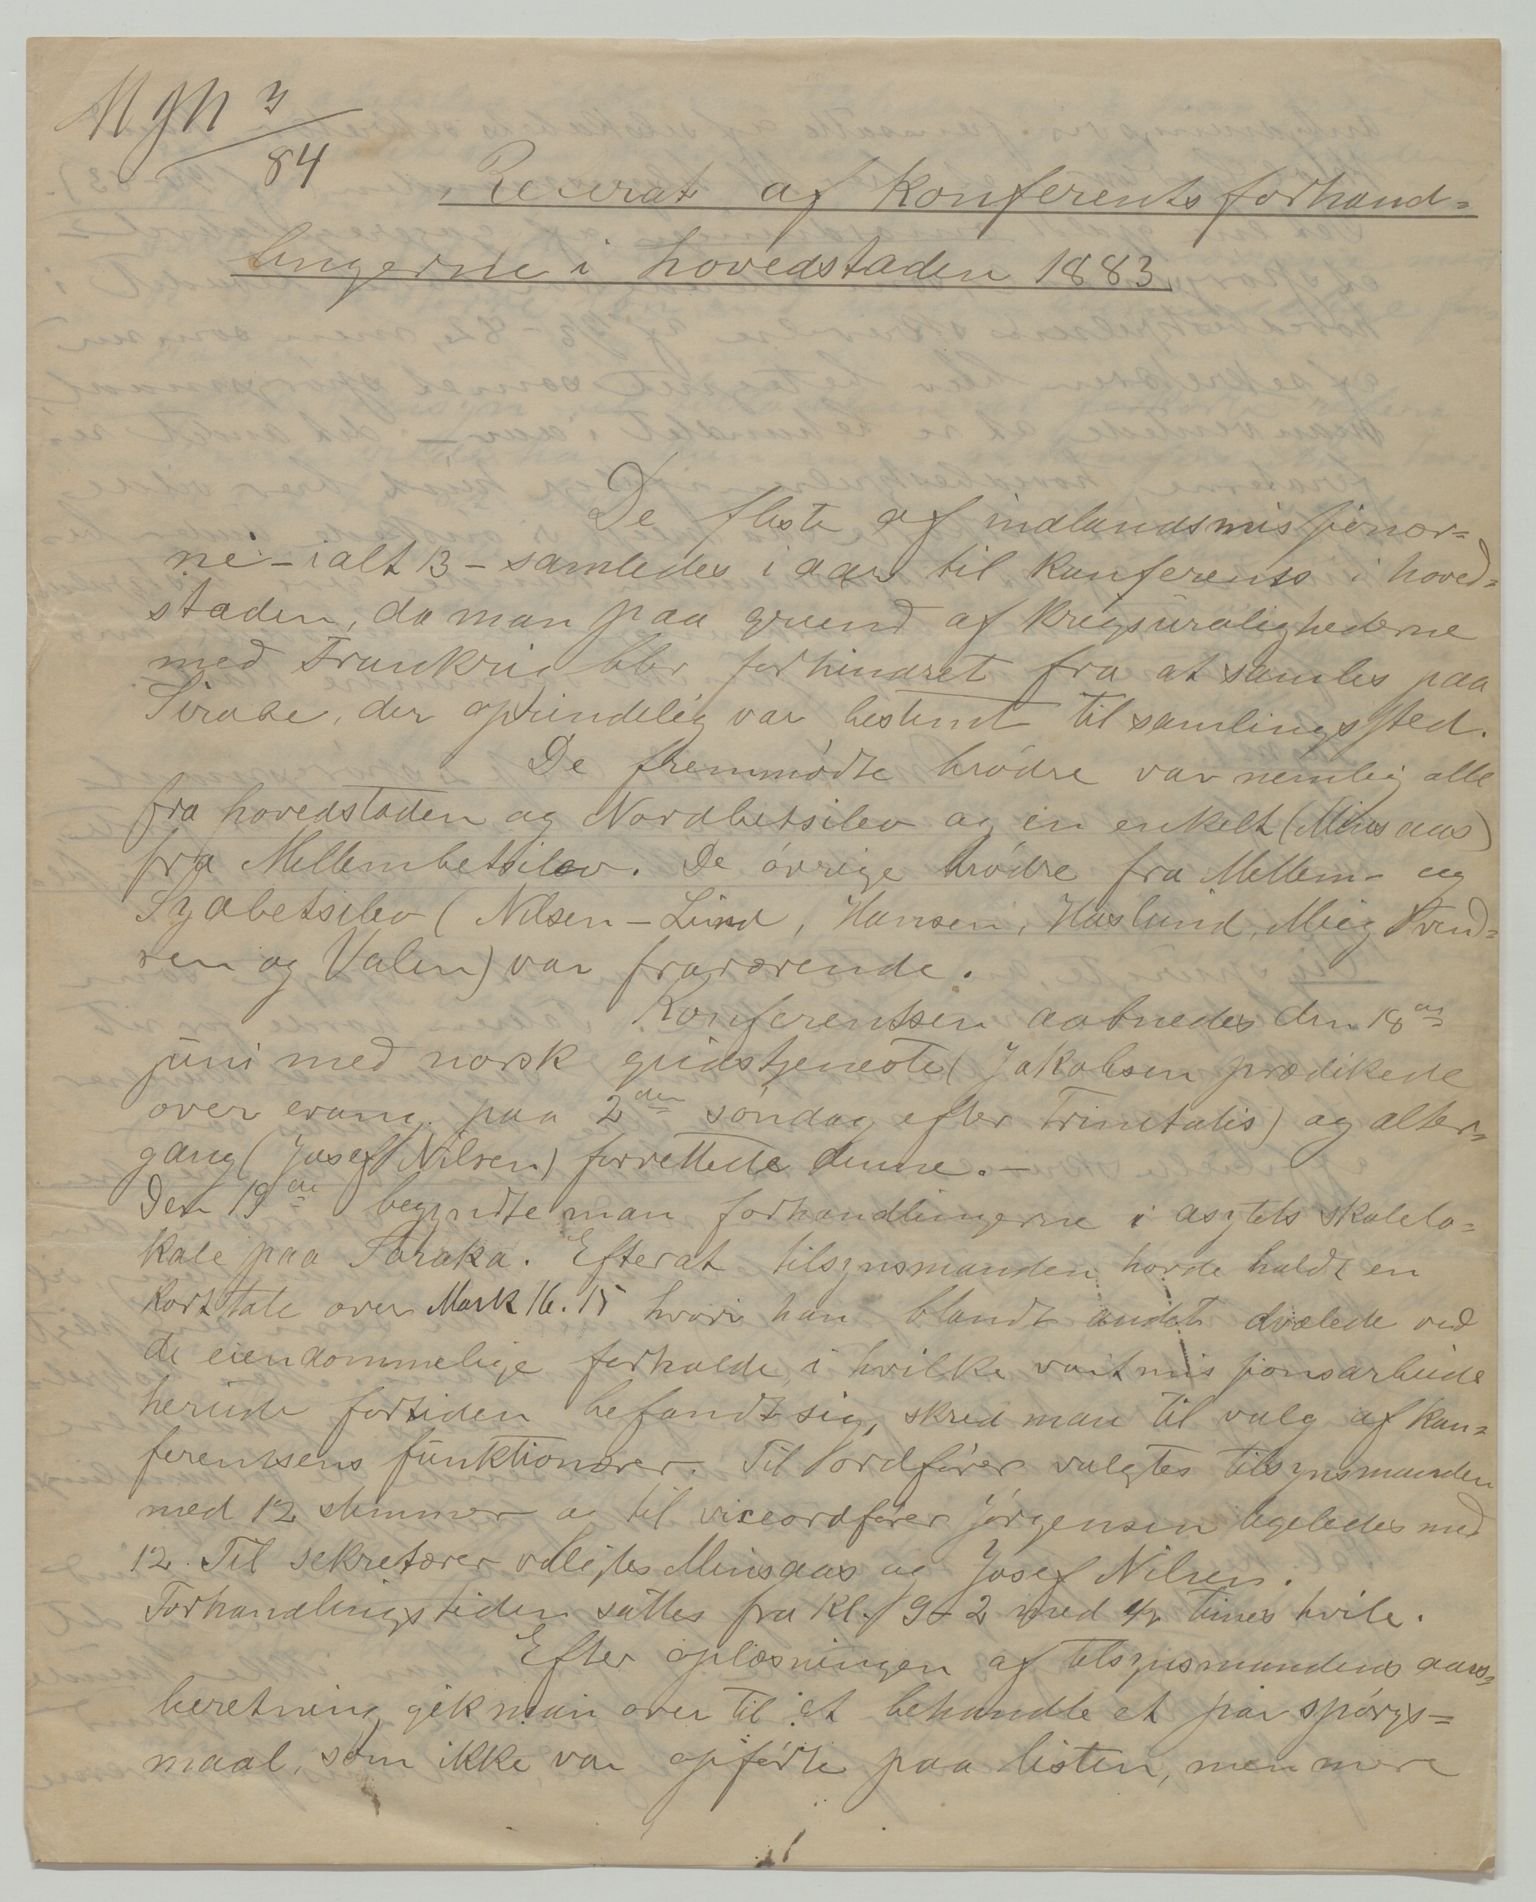 84
Referat af konferentsforhand-
lingerne i hovedstaden 1883
De fleste af indlandsmisjionær-
ne - ialt 13 - samledes i aar til konferents i hoved-
staden, da man paa grund af krigsurolighederne
med Frankrig blev forhindret fra at samles paa
Sirabe, der oprindelig var bestemt til samlingssted.
De fremmødte brødre var nemlig alle
fra hovedstaden og Nordbetsileo og en enkelt (Minsaas)
fra Mellembetsileo. De øvrige brødre fra Mellem- og
Sydbetsileo (Nilsen-Lund, Hansen, Haslund, Meeg
ren og Valen) var fraværende.
Konferentsen aabnedes den 18de
juni med norsk gudstjeneste (Jakobsen prædikede
over evang. paa 2den søndag efter Trinitatis) og alter-
gang (Josef Nilsen) forrettede denne. -
Den 19de begyndte man forhandlingerne i asylets skolelo-
kale paa Faraka. Efterat tilsynsmanden havde holdt en
kort tale over Mark 16.15 hvori han blandt andet dvælede ved
de eiendommelige forholde, i hvilke vort misjionsarbeide
herude fortiden befandt sig, skred man til valg af kon-
ferentsens funktionærer. Til ordfører valgtes tilsynsmanden
med 12 stemmer og til viceordfører Jørgensen ligeledes med
12. Til sekretærer valgtes Minsaas og Josef Nilsen.
Forhandlingstiden sattes fra kl. 9-2 med ½ times hvile.
Efter oplæsningen af tilsynsmandens aars-
beretning gik man over til at behandle et par spørgs-
maal, som ikke var opførte paa listen, men mere